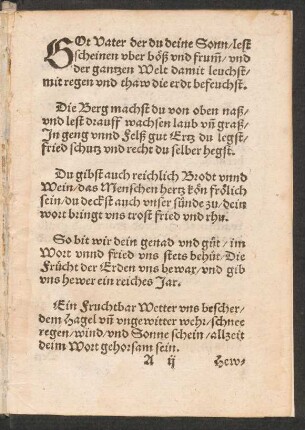 GOt Vater der du deine Sonn/lest
scheinen vber böß vnd frum̃/vnd
der gantzen Welt damit leuchst/
mit regen vnd thaw die erdt befeuchst.
Die Berg machst du von oben naß/
vnd lest drauff wachsen laub vn̄ graß/
In geng vnnd Felß gut Ertz du legst/
fried schutz vnd recht du selber hegst.
Du gibst auch reichlich Brodt vnnd
Wein/das Menschen hertz kön frölich
sein/du deckst auch vnser sünde zu/dein
wort bringt vns trost fried vnd rhu.
So bit wir dein genad vnd güt/im
Wort vnnd fried vns stets behüt/Die
Frücht der Erden vns bewar/vnd gib
vns hewer ein reiches Jar.
Ein Fruchtbar Wetter vns bescher/
dem Hagel vn̄ vngewitter wehr/schnee
regen/wind/vnd Sonne schein/allzeit
deim Wort gehorsam sein.
A ij Hew-